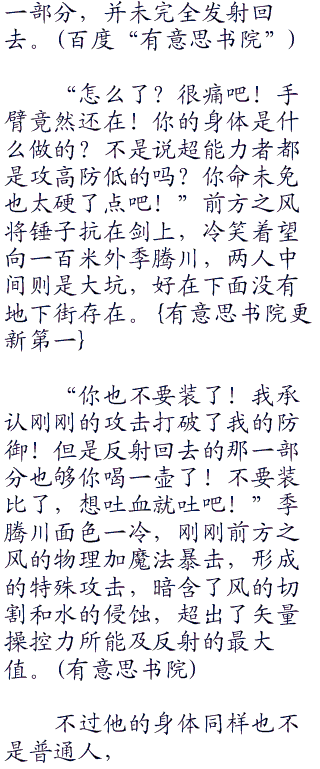 一部分，并未完全发射回
去。(百度“有意思书院”)
“怎么了？很痛吧！手
臂竟然还在！你的身体是什
么做的？不是说超能力者都
是攻高防低的吗？你命未免
也太硬了点吧！”前方之风
将锤子抗在剑上，冷笑着望
向一百米外季腾川，两人中
间则是大坑，好在下面没有
地下街存在。{有意思书院更
新第一}
“你也不要装了！我承
认刚刚的攻击打破了我的防
御！但是反射回去的那一部
分也够你喝一壶了！不要装
比了，想吐血就吐吧！”季
腾川面色一冷，刚刚前方之
风的物理加魔法暴击，形成
的特殊攻击，暗含了风的切
割和水的侵蚀，超出了矢量
操控力所能及反射的最大
值。(有意思书院)
不过他的身体同样也不
是普通人，